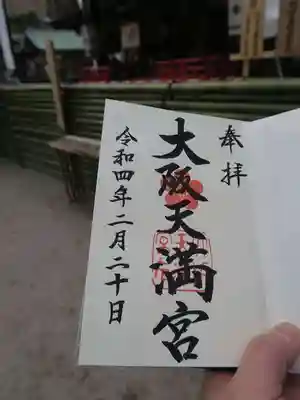 奉拝
大阪天満宮
令和四年二月二十日